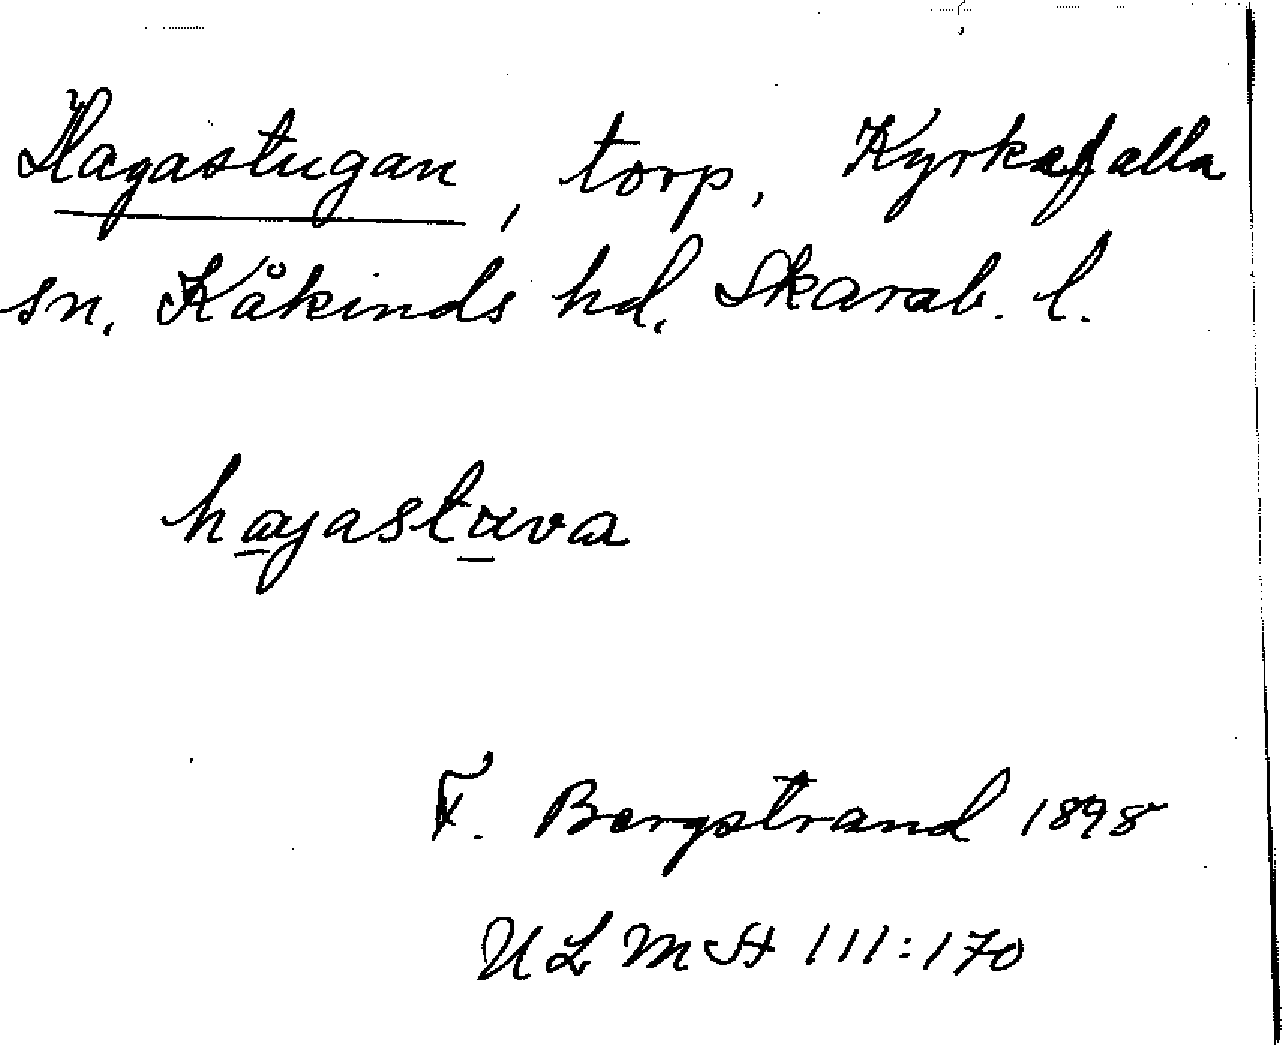 Hagastugan, torp, Kyrkefalla
sn, Kåkinds hd, Skarab. l.
hagastuva
F. Bergstrand 1898
ULMA 111:170